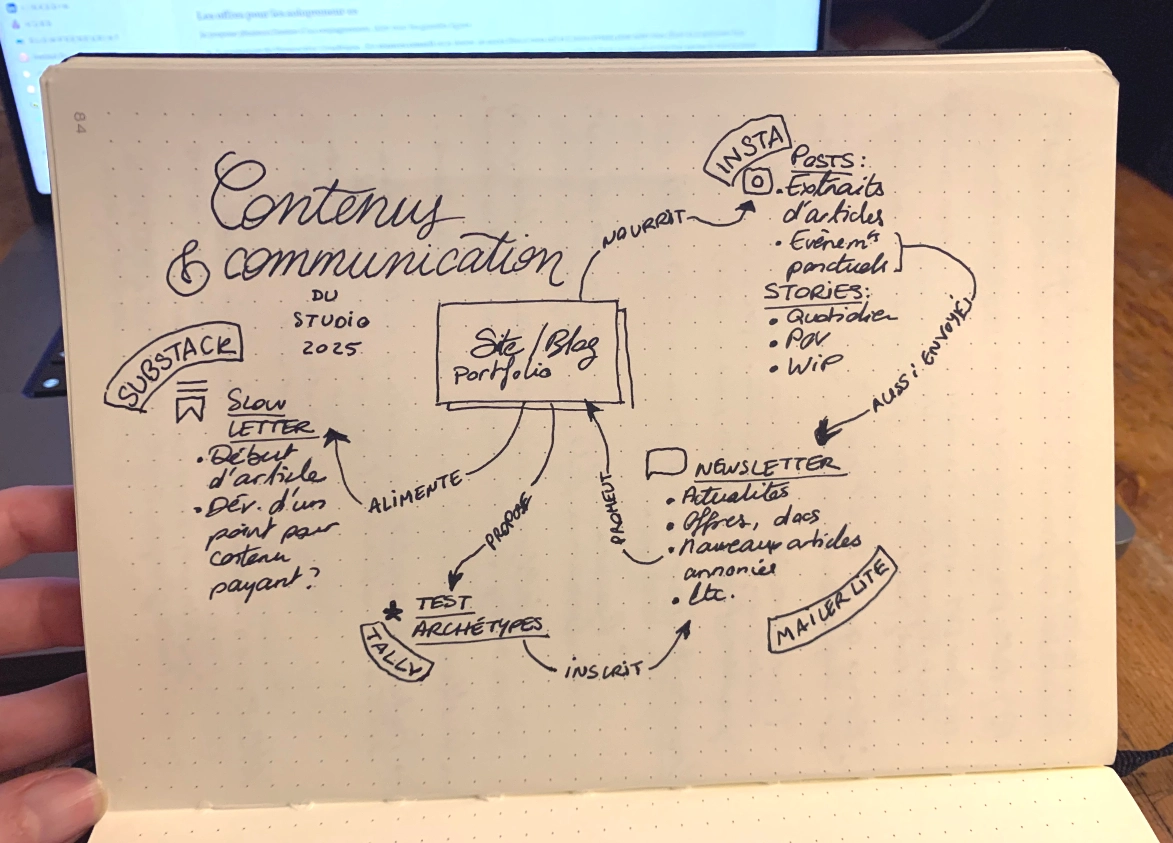 84
Contenus
& communication
DU
STUDIO
2025
INSTA
POSTS:
• Extraits
d'articles
• Evènemts
ponctuels
STORIES:
• Quotidien
• POV
• WiP
NOURRIT
AUSSI ENVOYÉS
Site/Blog
Portfolio
SUBSTACK
SLOW
LETTER
• Début
d'article
• Dév. d'un
point pour
contenu
payant?
ALIMENTE
PROPOSE
PROMEUT
NEWSLETTER
• Actualités
• Offres, docs
• Nouveaux articles
annoncés
• Etc.
MAILERLITE
* TEST
ARCHÉTYPES
TALLY
INSCRIT